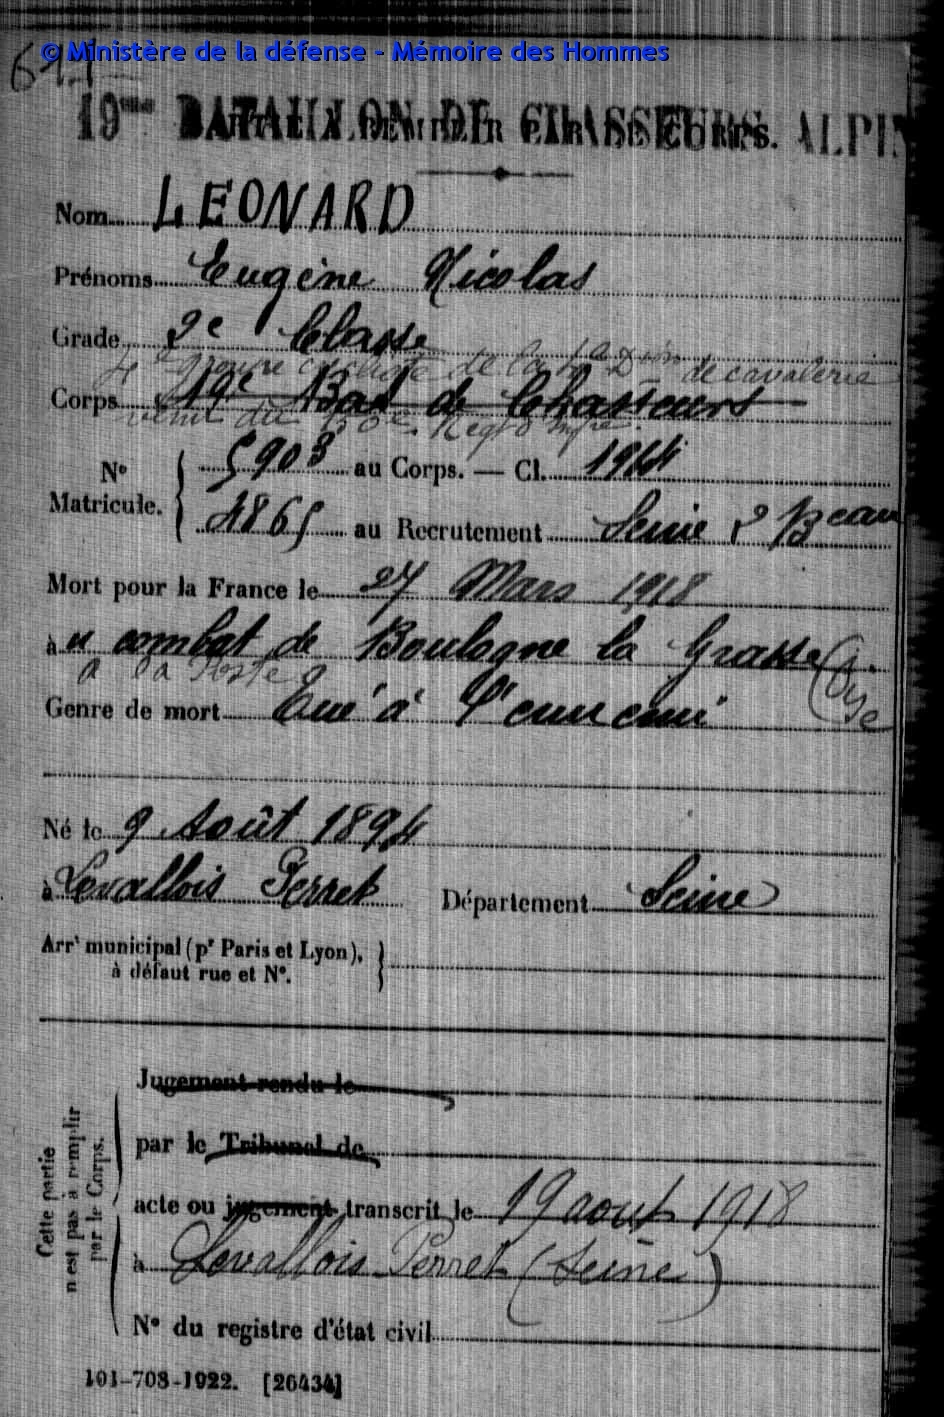 © Ministère de la défense - Mémoire des Hommes
19ème BATAILLON DE CHASSEURS ALPIN
PARTIE À REMPLIR PAR LE CORPS.
Nom LEONARD
Prénoms Eugène Nicolas
Grade 2e Classe
4e groupe cycliste de la Don de cavalerie
Corps 19e Bat de Chasseurs
venu du 130e Regt d'Infie
No Matricule. { 5903 au Corps. — Cl. 1914
4865 au Recrutement Seine 2 Beau
Mort pour la France le 27 Mars 1918
à u combat de Boulogne la Grasse (Oise
à la Poste
Genre de mort Tué à l'ennemi
Né le 9 Août 1894
à Levallois Perret Département Seine
Arrt municipal (pr Paris et Lyon),
à défaut rue et No.
Cette partie
n'est pas à remplir
par le Corps.
Jugement rendu le
par le Tribunal de
acte ou jugement transcrit le 19 aout 1918
à Levallois Perret (Seine)
No du registre d'état civil
101-708-1922. [26434]